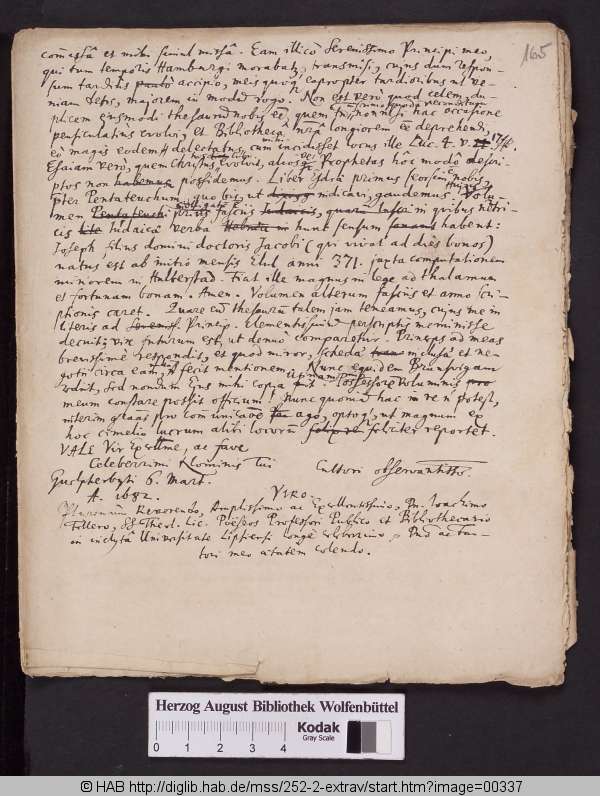 165
et mihi simul missâ. Eam illicò Serenissimo Principi meo,
qui tum temporis Hamburgi morabatur, transmisi, cujus dum respon-
sum tardius accipio, meis quoque eapropter tardioribus ut ve-
niam detis, majorem in modum rogo. Non est verò quod celem, du-
plicem ejusmodi thesaurum nobis
hac occasione
pensiculatius evolvi, et Bibliothecâ longiorem deprehendi,
eò magis eodem delectatus, cum mihi incidisset locus ille Luc. 4. v. 17
Esaiam verò, quem Christus evolvit, aliosve Prophetas hoc modo descri-
ptos non habemus possidemus. Liber Esdræ primus seorsim nobis,
præter Pentateuchum, quo bis, ut indicavi, gaudemus. Volu-
men Pentateuchi prius fasciis in quibus
cis Judaicâ verba Hebraica hunc sensum habent:
Joseph, filius domini doctoris Jacobi (qui vivat ad dies bonos)
natus est ab initio mensis Elul anni 371. juxta computationem
minorem in Halberstad. Fiat ille magnus in lege ad thalamum
et fortunam bonam. Amen. Volumen alterum fasciis et anno scri-
ptionis caret. Quare cum thesaurum talem jam teneamus, cujus me in
literis ad Sereniss. Princip. clementissimum perscriptis meminisse
decuit, vix futurum est, ut denuo comparetur. Princeps ad meas
brevissimè respondit, et quod miror, schedæ inclusæ et ne-
gotii circa eam, non fecit mentionem. Nunc equidem Brunsvigam
vadit, sed nondum Ejus mihi copia Possessore Voluminis pro
meum constare possit officium! Nunc quoniam hac in re non potest,
interim grates pro communicatione ago, optoque, ut magnum ex
hoc cimelio lucrum alibi locorum feliciter reportet.
VALE Vir Excellme, ac fave
Celeberrimi Nominis Tui
Cultori observantisso.
Guelpherbyti 6. Mart.
A. 1682.
VIRO
Reverendo, Amplissimo ac Excellentissimo, Dn. Joachimo
Fellero, SS Theol. Lic. Poëseos Professori Publico et Bibliothecario
in inclytâ Universitate Lipsiensi longè celeberrimo, Dno ac Fau-
tori meo ætatem colendo.
Herzog August Bibliothek Wolfenbüttel
0 1 2 3 4
Kodak
Gray Scale
© HAB http://diglib.hab.de/mss/252-2-extrav/start.htm?image=00337